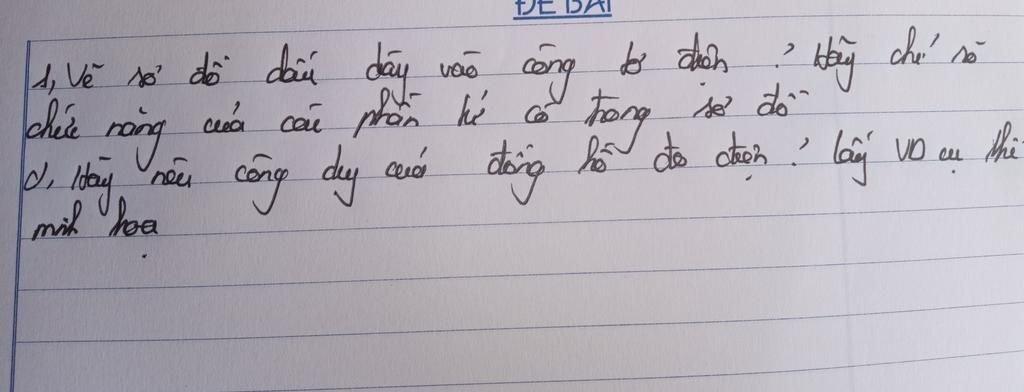 ĐỀ BÀI
1, Vẽ sơ đồ đấu dây vào công tơ điện ? Hãy chỉ rõ
chức năng của các phần tử có trong sơ đồ
2, Hãy nêu công dụng của đồng hồ đo điện ? Lấy VD cụ thể
minh họa